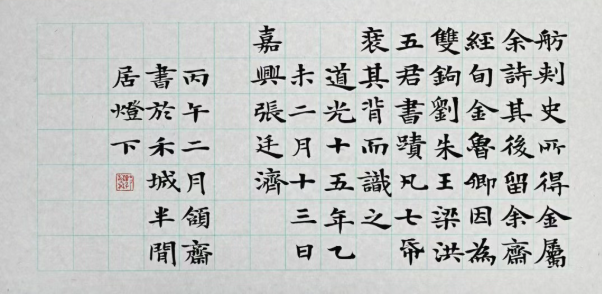 舫刺史所得金屬
余詩其後留余齋
經旬金魯卿因為
雙鉤劉朱王梁洪
五君書蹟凡七帋
裝其背而識之
道光十五年乙
未二月十三日
嘉興張廷濟
丙午二月領齋
書於禾城半閒
居燈下